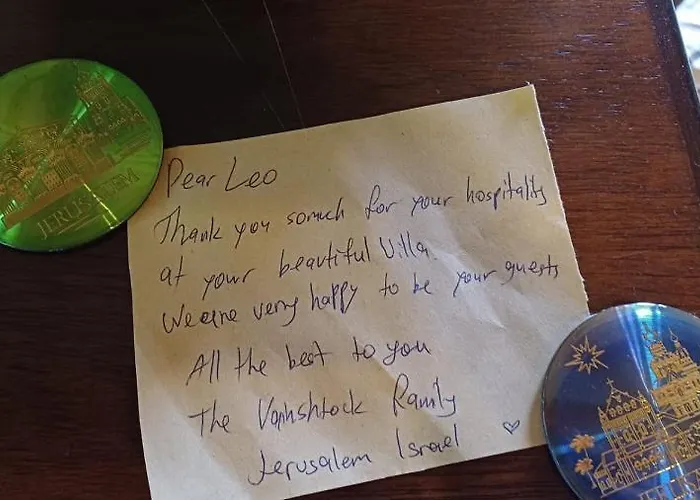 JERUSALEM
Dear Leo
Thank you somuch for your hospitality
at your beautiful Villa.
Weere very happy to be your guests
All the best to you
The Vanhshtock Family
Jerusalem Israel